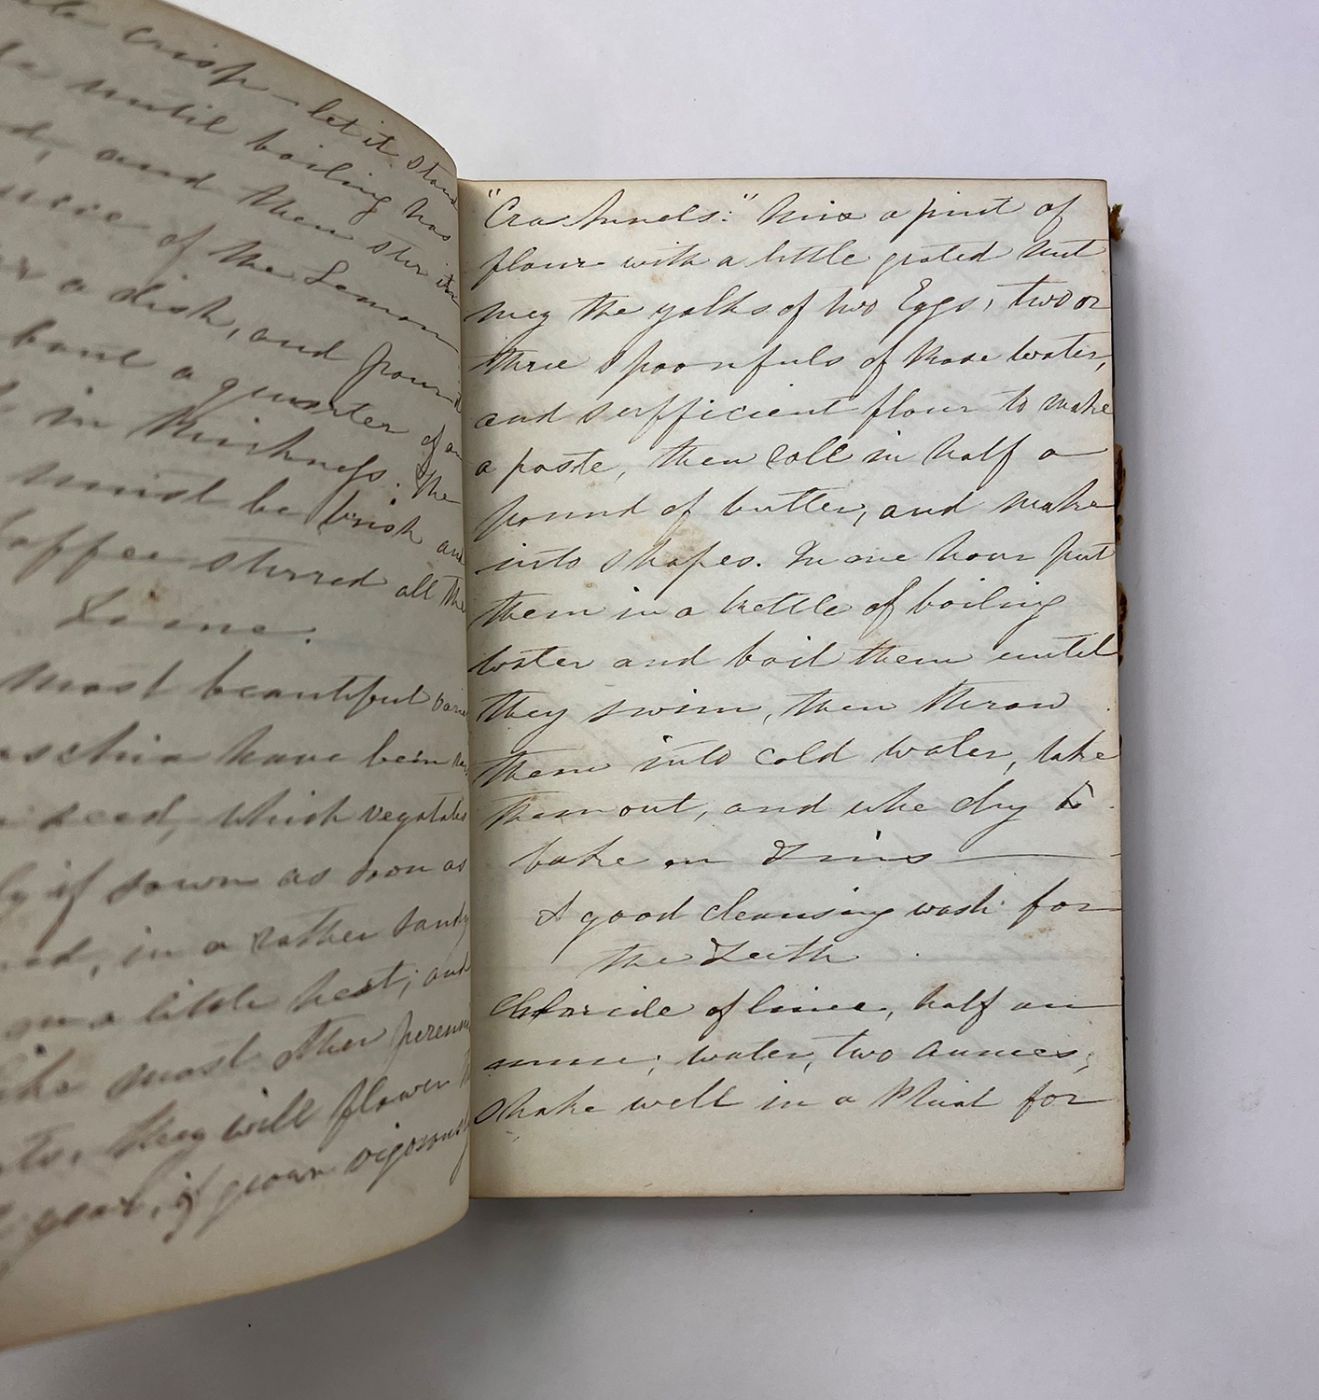 crisp - let it stand
until boiling has
and then stir in
juice of the Lemon
a dish, and pour it
a quarter of an
in thickness. The
must be brisk and
Coffee stirred all the
time.
most beautiful
have been
seed, which vegetates
if sown as soon as
in a rather sandy
a little heat; and
most other
they will flower
year, if grown vigorously
"Cracknels:" Mix a pint of
flour with a little grated nut
meg the yolks of two Eggs, two or
three spoonfuls of Rose water,
and sufficient flour to make
a paste, then roll in half a
pound of butter, and make
into shapes. In one hour put
them in a kettle of boiling
water and boil them until
they swim, then throw
them into cold water, take
them out, and whe dry
bake on Tins
A good cleansing wash for
the Teeth
Chloride of lime, half an
ounce; water, two ounces;
shake well in a Phial for